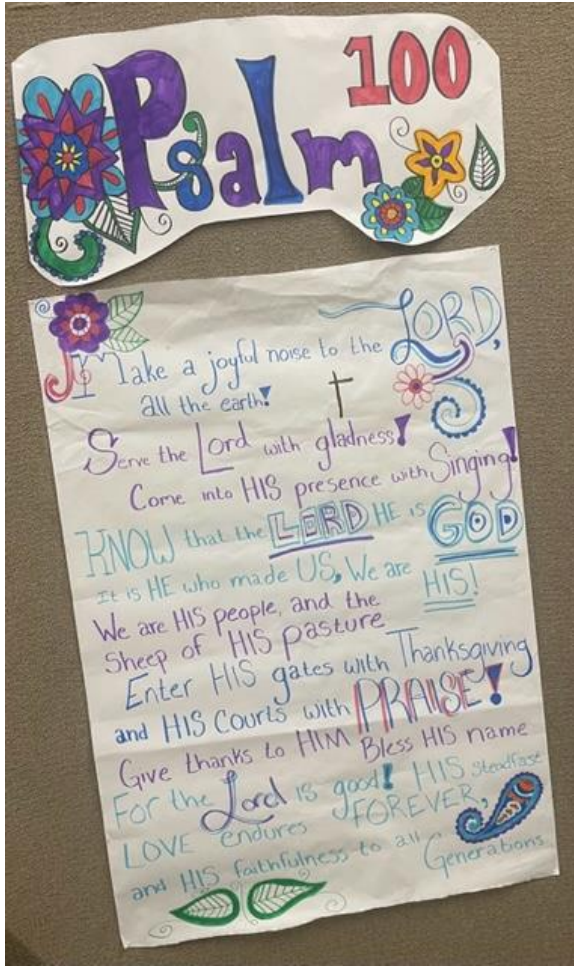 Psalm 100
Make a joyful noise to the LORD,
all the earth!
Serve the Lord with gladness!
Come into HIS presence with Singing!
KNOW that the LORD HE is GOD
It is HE who made US, We are HIS!
We are HIS people, and the
Sheep of HIS pasture
Enter HIS gates with Thanksgiving
and HIS Courts with PRAISE!
Give thanks to HIM Bless HIS name
For the Lord is good! HIS Steadfast
LOVE endures FOREVER,
and HIS faithfulness to all Generations